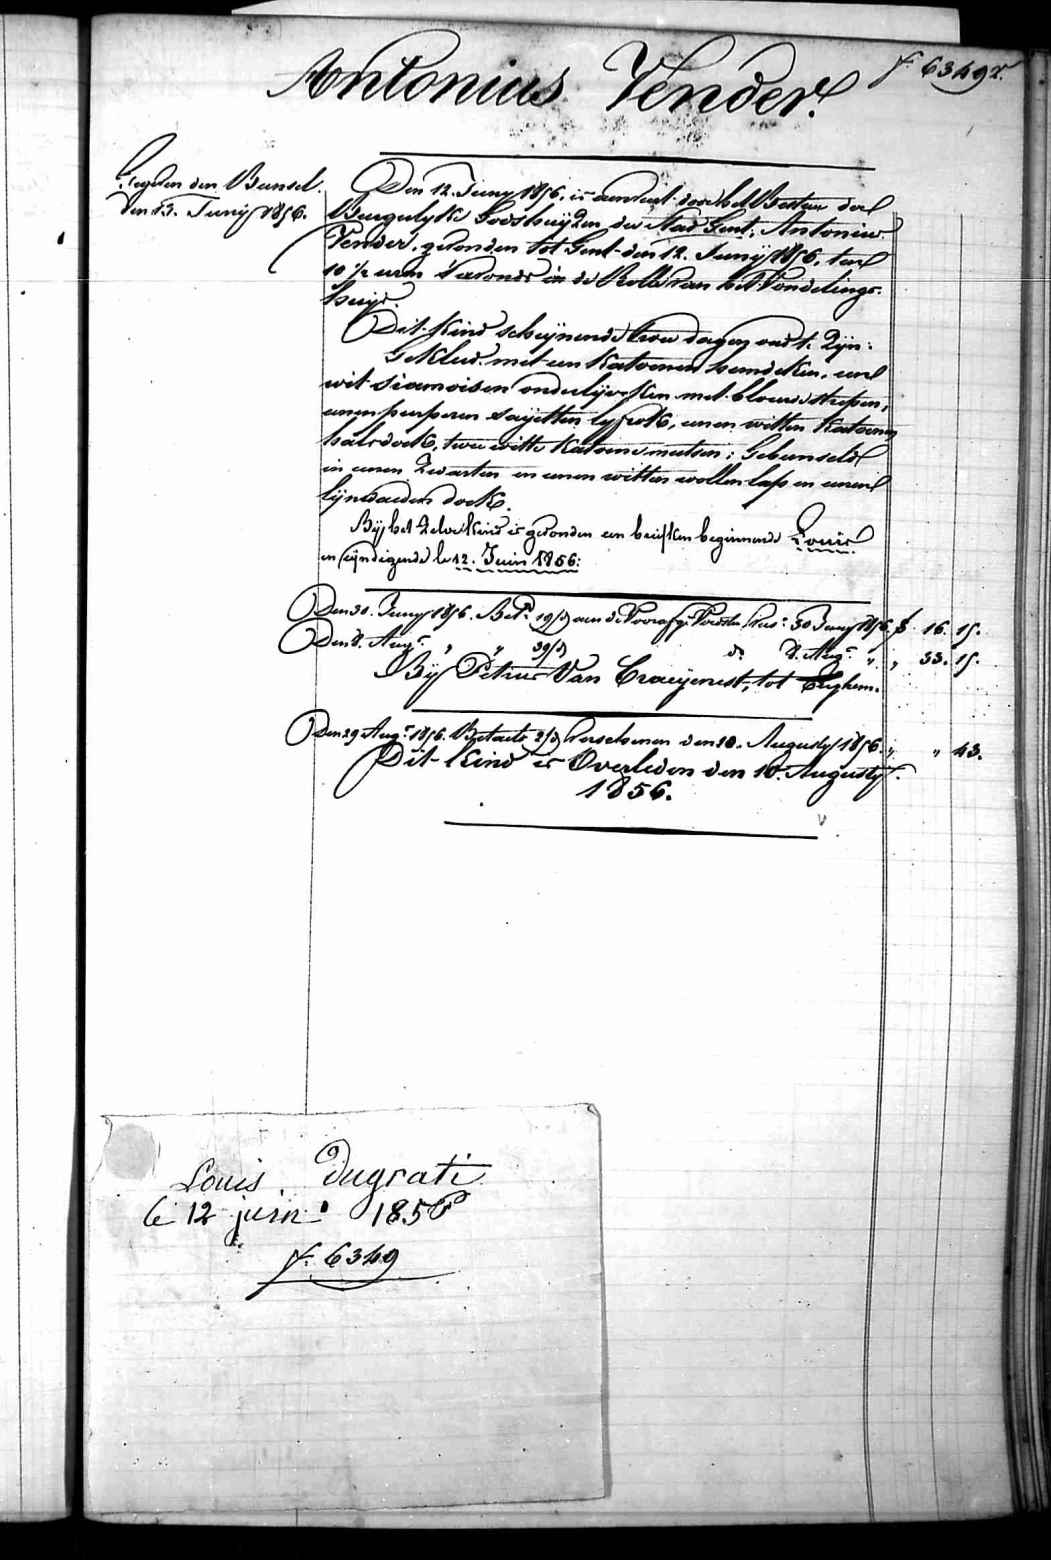 Antonius Vender.
f. 6349
Gegeven den Bunsel.
den 13. Junij 1856.
Den 12. Juny 1856. is aenveert door het Bestuer der
Burgerlyke Godshuyzen der Stad Gent, Antonius
Vender, gevonden tot Gent den 12. Junij 1856. ten
10 1/2 uren 's avonds in de Rolle van het Vondelings-
huys.
Dit kind scheynende twee dagen oud te zyn:
Gekleed met een katoenen hemdeken, een
wit siamoisen onderlijveken met blauwe strepen,
eenen purperen sayetten lyfrok, eenen witten katoenen
halsdoek, twee witte katoene mutsen; Gebunseld
in eenen zwarten en eenen witten wollen lap en eenen
lijnwaeden doek.
Bij het zelve kind is gevonden een briefken beginnende Louis
en eyndigende le 12. Juin 1856:
Den 30. Juny 1856. Bet. 19/d aen de Voorsz. Voedster vers. 30 Juny 1856. 16. 15.
Den 8. Aug. " " 39/d do. 8. Aug. " " 33. 15.
Bij Petrus Van Craeijenest, tot
Den 29 Aug. 1856. Betaelt 2/d verschenen den 10. Augusty 1856. " " 43.
Dit kind is Overleden den 10. Augusty
1856.
Louis Dugrati
le 12 juin 1856
f. 6349